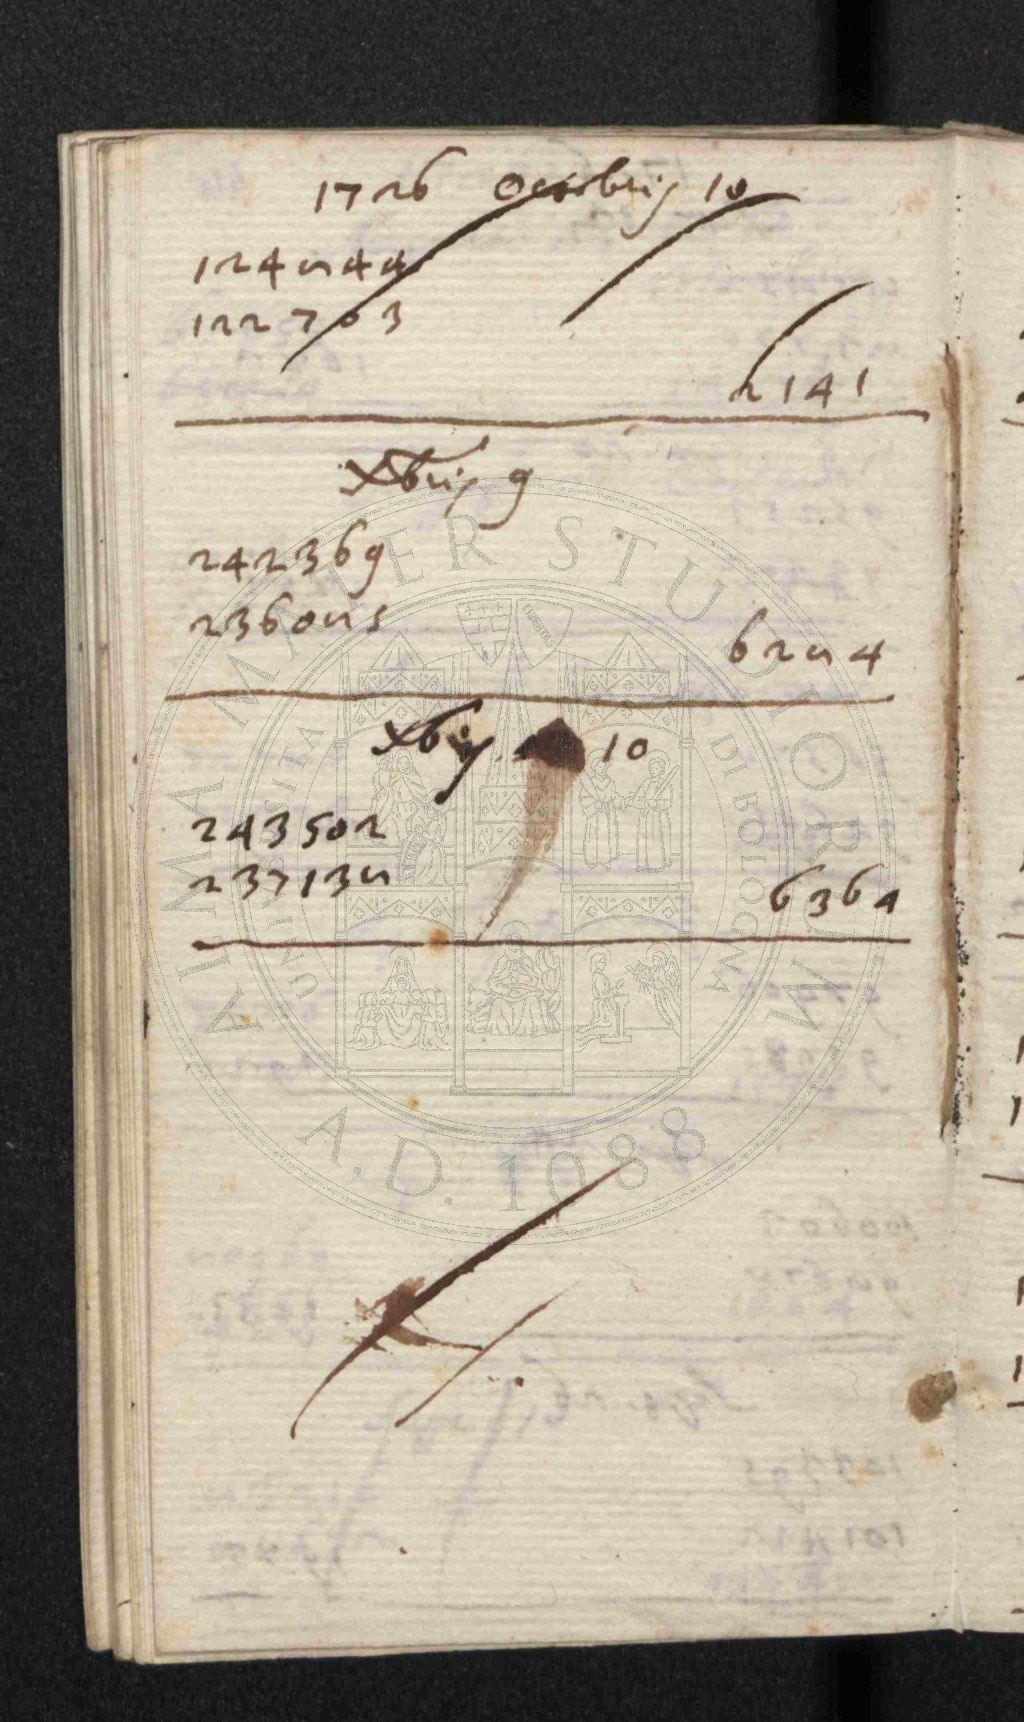 1726 Octobris 10
124844
122703
2141
Xbris 9
242369
236085
6284
Xbris 10
243502
237138
6364
ALMA MATER STUDIORUM
UNIVERSITÀ DI BOLOGNA
A.D. 1088